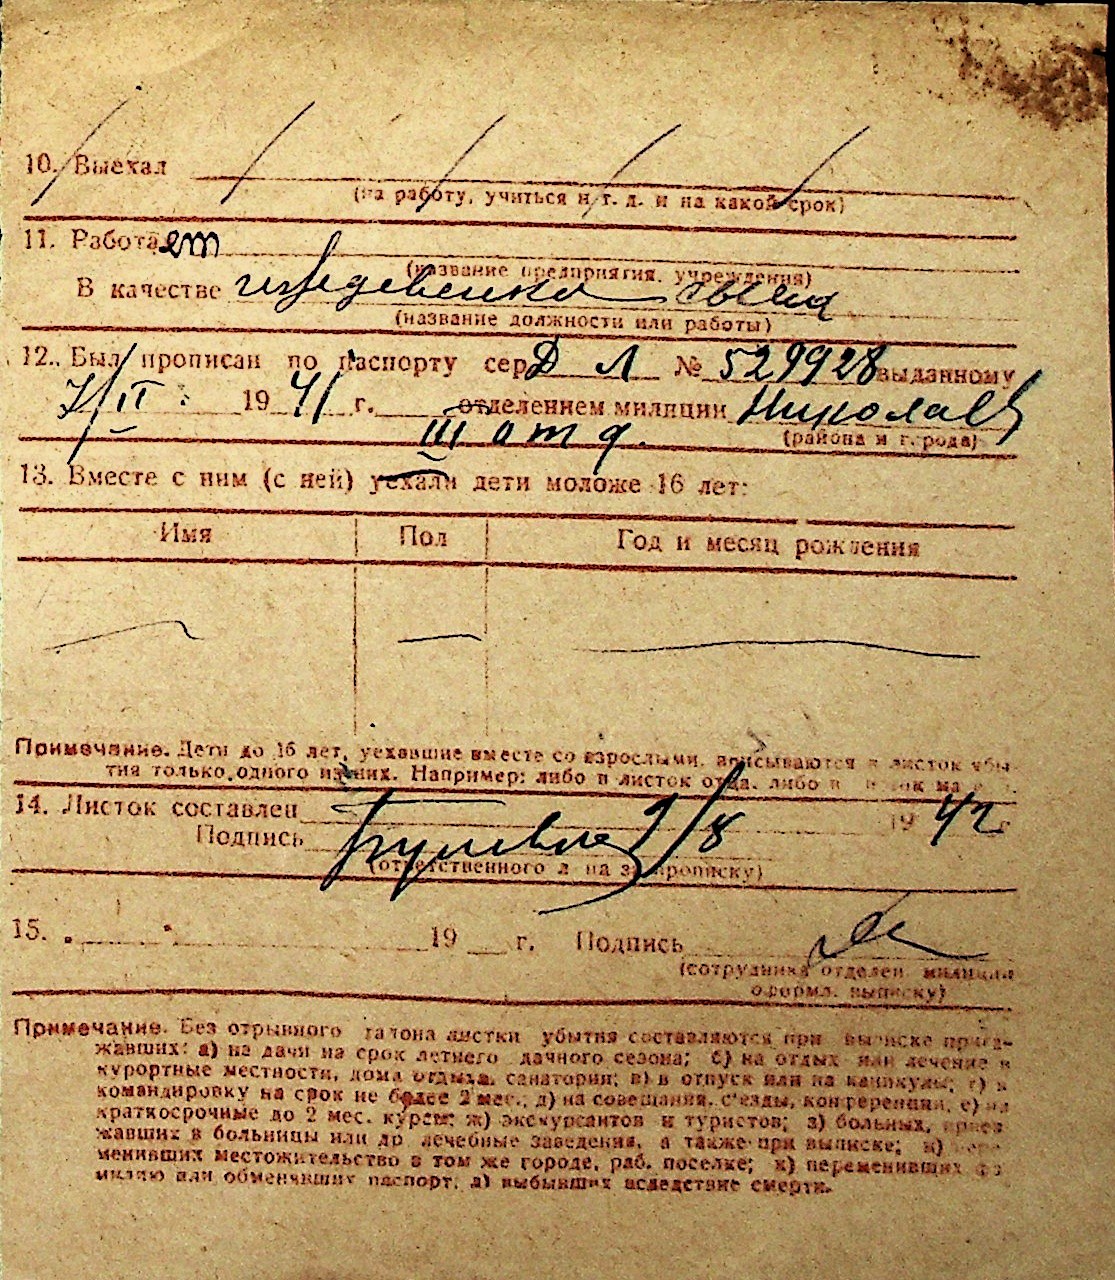 10. Выехал
(на работу, учиться и т. д. и на какой срок)
11. Работает
(название предприятия, учреждения)
В качестве иждевенка сына
(название должности или работы)
12. Был прописан по паспорту сер. Д Л № 529928 выданному
7/II 1941 г. отделением милиции Николаев
III отд. (района и города)
13. Вместе с ним (с ней) уехали дети моложе 16 лет:
Имя Пол Год и месяц рождения
Примечание. Дети до 16 лет, уехавшие вместе со взрослыми, вписываются в листок убы-
тия только одного из них. Например: либо в листок отца, либо в листок ма
14. Листок составлен 9/8 1942 г
Подпись
(ответственного л на за прописку)
15. 19 г. Подпись
(сотрудника отделен. милиции
оформл. выписку)
Примечание. Без отрывного талона листки убытия составляются при выписке приез-
жавших: а) на дачи на срок летнего дачного сезона; б) на отдых или лечение в
курортные местности, дома отдыха, санатории; в) в отпуск или на каникулы; г) в
командировку на срок не более 2 мес.; д) на совещания, с'езды, конференции; е) на
краткосрочные до 2 мес. курсы; ж) экскурсантов и туристов; з) больных, приез
жавших в больницы или др. лечебные заведения, а также при выписке; и) пере
менивших местожительство в том же городе, раб. поселке; к) переменивших фа
милию или обменявших паспорт, л) выбывших вследствие смерти.